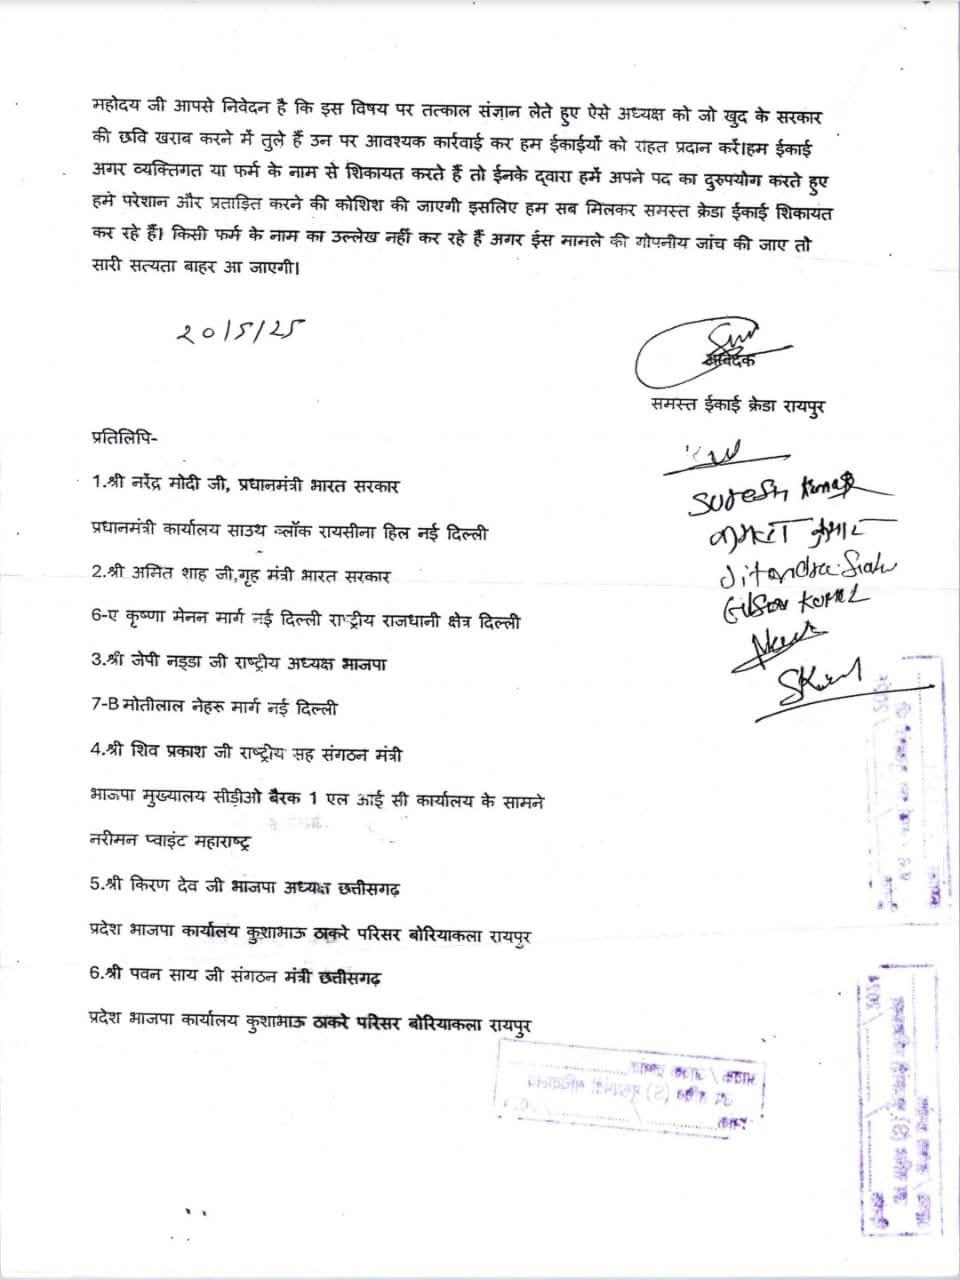 महोदय जी आपसे निवेदन है कि इस विषय पर तत्काल संज्ञान लेते हुए ऐसे अध्यक्ष को जो खुद के सरकार
की छवि खराब करने में तुले हैं उन पर आवश्यक कार्रवाई कर हम ईकाईयों को राहत प्रदान करें।हम ईकाई
अगर व्यक्तिगत या फर्म के नाम से शिकायत करते हैं तो ईनके द्वारा हमें अपने पद का दुरुपयोग करते हुए
हमे परेशान और प्रताड़ित करने की कोशिश की जाएगी इसलिए हम सब मिलकर समस्त क्रेडा ईकाई शिकायत
कर रहे हैं। किसी फर्म के नाम का उल्लेख नहीं कर रहे हैं अगर ईस मामले की गोपनीय जांच की जाए तो
सारी सत्यता बाहर आ जाएगी।
20/5/25
आवेदक
समस्त ईकाई क्रेडा रायपुर
प्रतिलिपि-
1.श्री नरेंद्र मोदी जी, प्रधानमंत्री भारत सरकार
Suresh Kumar
प्रधानमंत्री कार्यालय साउथ ब्लॉक रायसीना हिल नई दिल्ली
कुमार
2.श्री अमित शाह जी,गृह मंत्री भारत सरकार
Jitendra
6-ए कृष्णा मेनन मार्ग नई दिल्ली राष्ट्रीय राजधानी क्षेत्र दिल्ली
3.श्री जेपी नड्डा जी राष्ट्रीय अध्यक्ष भाजपा
7-B मोतीलाल नेहरू मार्ग नई दिल्ली
4.श्री शिव प्रकाश जी राष्ट्रीय सह संगठन मंत्री
भाजपा मुख्यालय सीडीओ बैरक 1 एल आई सी कार्यालय के सामने
नरीमन प्वाइंट महाराष्ट्र
5.श्री किरण देव जी भाजपा अध्यक्ष छत्तीसगढ़
प्रदेश भाजपा कार्यालय कुशाभाऊ ठाकरे परिसर बोरियाकला रायपुर
6.श्री पवन साय जी संगठन मंत्री छत्तीसगढ़
प्रदेश भाजपा कार्यालय कुशाभाऊ ठाकरे परिसर बोरियाकला रायपुर